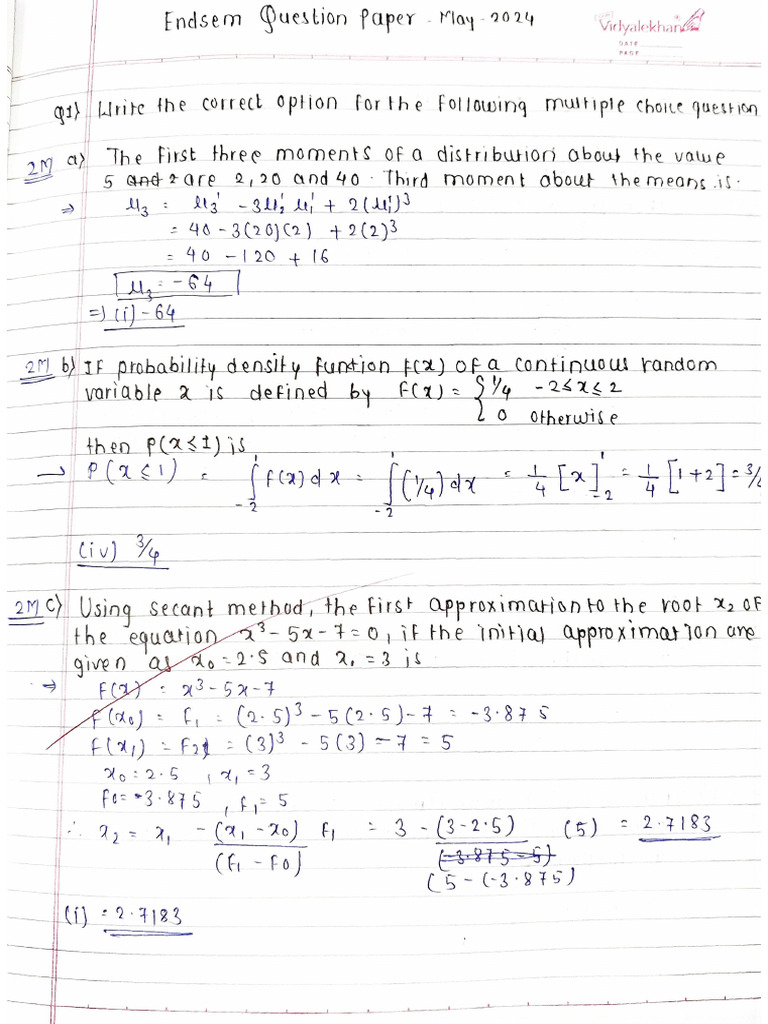 Endsem Question Paper - May - 2024
Vidyalekhan
DATE
PAGE
Q1) Write the correct option for the following multiple choice question
2M a) The first three moments of a distribution about the value
5 and 2 are 2, 20 and 40. Third moment about the means is.
⇒ μ₃ = μ₃' - 3μ₂' μ₁' + 2(μ₁')³
= 40 - 3(20)(2) + 2(2)³
= 40 - 120 + 16
μ₃ = -64
⇒ (i) - 64
2M b) If probability density funtion f(x) of a continuous random
variable x is defined by f(x) = { 1/4 -2≤x≤2
0 otherwise
then P(x≤1) is
→ P(x≤1) = ∫₋₂¹ f(x)dx = ∫₋₂¹ (1/4)dx = 1/4 [x]₋₂¹ = 1/4 [1+2] = 3/4
(iv) 3/4
2M c) Using secant method, the first approximation to the root x₂ of
the equation x³ - 5x - 7 = 0, if the initial approximation are
given as x₀ = 2.5 and x₁ = 3 is
⇒ f(x) = x³ - 5x - 7
f(x₀) = f₁ = (2.5)³ - 5(2.5) - 7 = -3.875
f(x₁) = f₂ = (3)³ - 5(3) - 7 = 5
x₀ = 2.5 , x₁ = 3
f₀ = -3.875 , f₁ = 5
∴ x₂ = x₁ - (x₁ - x₀)/(f₁ - f₀) f₁ = 3 - (3 - 2.5) (5) = 2.7183
(-3.875 - 5)
(5 - (-3.875)
(i) = 2.7183